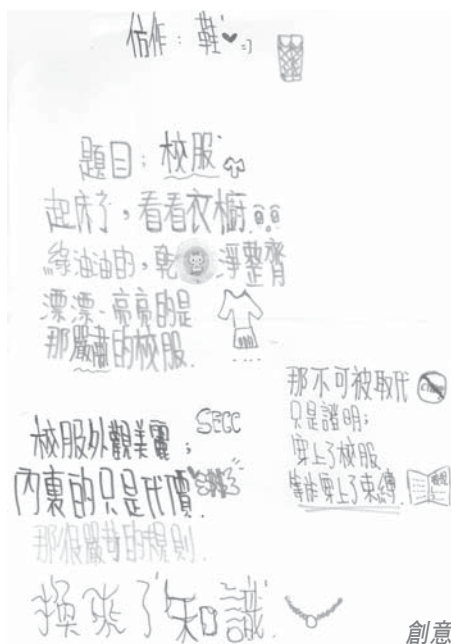 仿作：鞋
題目：校服
起床了，看看衣櫥
綠油油的，乾淨整齊
漂漂亮亮的是
那嚴肅的校服.
校服外觀美麗；
SFCC
內裏的只是代價.
那很嚴苛的規則.
換來了知識.
那不可被取代
只是證明；
穿上了校服
等於穿上了束縛.
創意